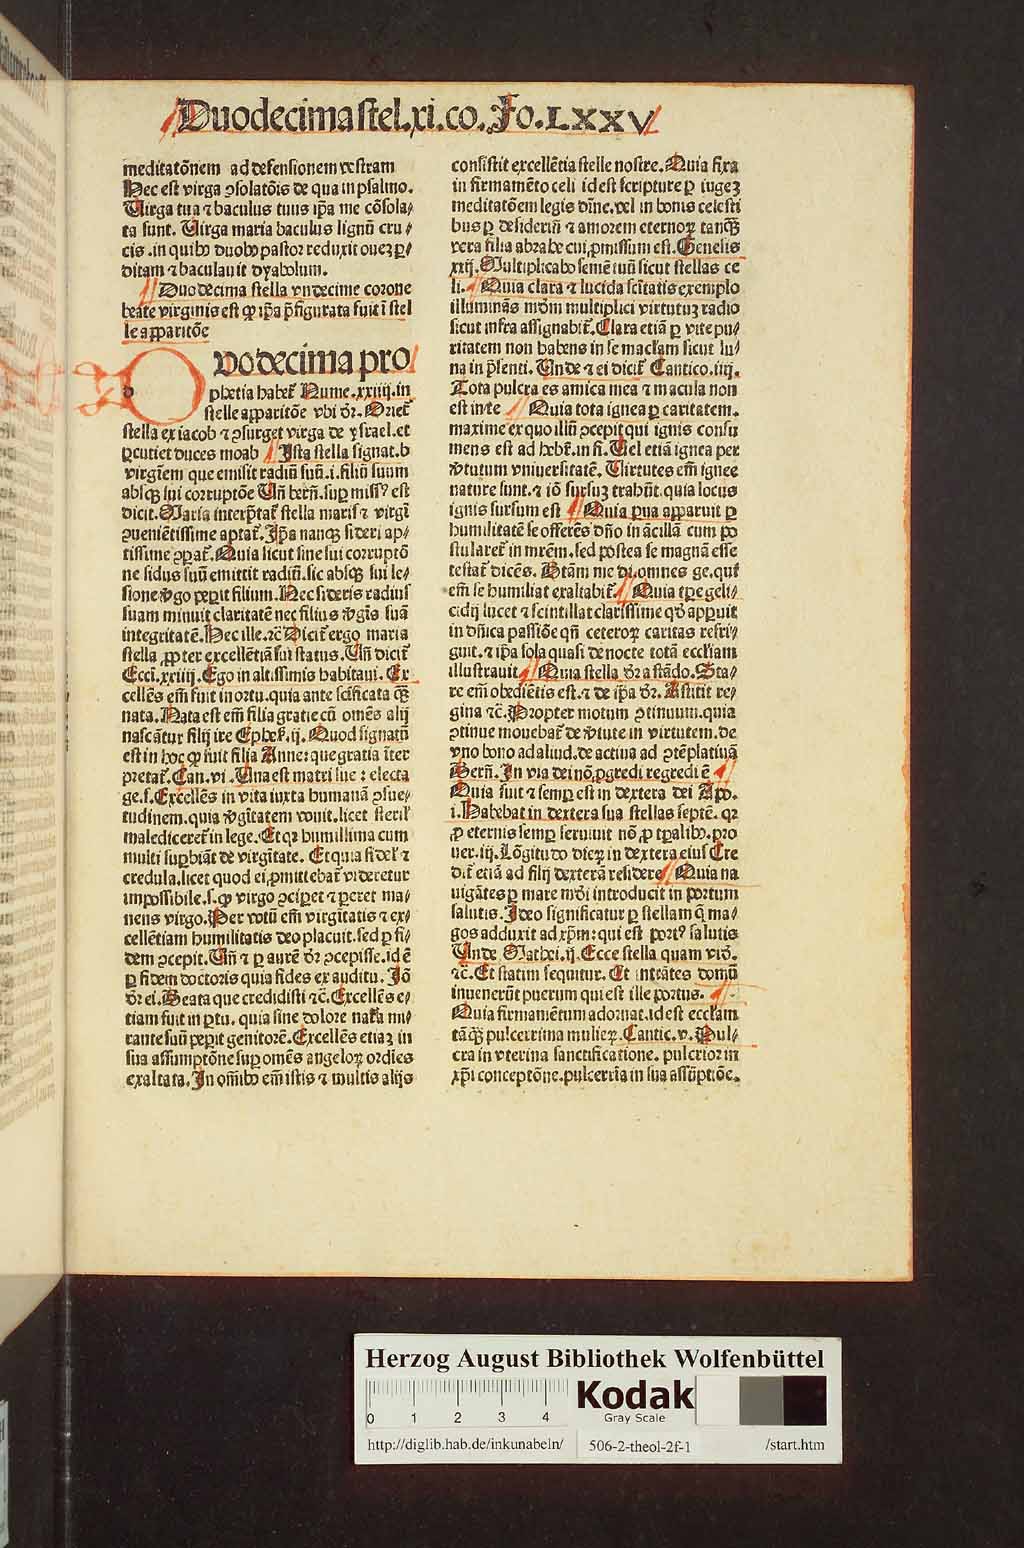 Duodecima stel.xi.co. Fo.LXXV
meditatõnem ad defensionem vestram
Hec est virga ↄsolatõis de qua in psalmo.
Virga tua ⁊ baculus tuus ip̃a me cõsola/
ta sunt. Virga maria baculus lignũ cru/
cis.in quibꝰ duobꝰ pastor reduxit ouez ꝑ/
ditam ⁊ baculauit dyabolum.
Duodecima stella vndecime corone
beate virginis est ꝙ ip̃a p̃figurata fuit ĩ stel
le apparitõe
d
vodecima pro
phetia habet᷑ Nume.xxiiij.in
stelle apparitõe vbi dr̃.Oriet᷑
stella ex iacob ⁊ ↄsurget virga de ysrael.et
ꝑcutiet duces moab Ista stella signat.b
virgĩem que emisit radiũ suũ.i.filiũ suum
absqꝫ sui corruptõe Vñ bern̄.suꝑ missꝰ est
dicit.Maria interp̃tat᷑ stella maris ⁊ virgĩ
ↄueniẽtissime aptat᷑.Ip̃a nanqꝫ sideri ap/
tissime ↄpat᷑.Quia sicut sine sui corruptõ
ne sidus suũ emittit radiũ.sic absqꝫ sui le/
sione v̾go peꝑit filium.Nec sideris radius
suam minuit claritatẽ nec filius v̾gĩs suã
integritatẽ.Hec ille.⁊c̃ Dicit᷑ ergo maria
stella ꝓpter excellẽtiã sui status.Vñ dicit᷑
Ecci.xxiiij.Ego in altissimis habitaui.Ex
cellẽs em̃ fuit in ortu.quia ante scificata qꝫ̃
nata.Nata est em̃ filia gratie cũ omẽs alij
nascãtur filij ire Ephes.ij.Quod signatũ
est in hoc ꝙ fuit filia Anne:que gratia ĩter
pretat᷑.Can.vi.Una est matri sue:electa
ge.s.Excellẽs in vita iuxta humanã ↄsue/
tudinem.quia v̾gĩtatem vouit.licet steril᷑
malediceret᷑ in lege.Et qꝛ humillima cum
multi suꝑbiãt de virgĩtate. Et quia fidel᷑ ⁊
credula.licet quod ei ꝓmittebat᷑ videretur
impossibile.s.ꝙ virgo ↄciꝑet ⁊ ꝑeret ma/
nens virgo.Per votũ em̃ virgĩtatis ⁊ ex/
cellẽtiam humilitatis deo placuit.sed ꝑ fi/
dem ↄcepit.Vñ ⁊ ꝑ aurẽ dr̃ ↄcepisse.id ẽ
ꝑ fidem doctoris quia fides ex auditu. Iõ
dr̃ ei.Beata que credidisti ⁊c̃.Excellẽs e/
tiam fuit in ꝑtu. quia sine dolore nat̃a mi/
rante suũ peꝑit genitorẽ.Excellẽs etiaꝫ in
sua assumptõne suꝑ omẽs angeloꝝ ordies
exaltata.In om̃ibꝰ em̃ istis ⁊ multis alijs
consistit excellẽtia stelle nostre.Quia fixa
in firmamẽto celi id est scripture ꝑ iugeꝫ
meditatõem legis dĩne.vel in bonis celesti
bus ꝑ desideriũ ⁊ amorem eternoꝝ tanqꝫ̃
vera filia abrahe cui ꝓmissum est.Genesis
xxij.Multiplicabo semẽ tuũ sicut stellas ce
li. Quia clara ⁊ lucida scĩtatis exemplo
illuminãs mũdm multiplici virtutuꝫ radio
sicut infra assignabit᷑.Clara etiã ꝑ vite pu/
ritatem non habens in se maclam sicut lu/
na in p̃senti. Vnde ⁊ ei dicit᷑ Cantico.iiij.
Tota pulcra es amica mea ⁊ macula non
est in te Quia tota ignea ꝑ caritatem.
maxime ex quo illũ ↄcepit qui ignis consu
mens est ad hebr̃.in fi. Vel etiã ignea per
v̾tutum vniuersitatẽ. Virtutes em̃ ignee
nature sunt.⁊ iõ sursuꝫ trahũt.quia locus
ignis sursum est Quia ꝑua apparuit ꝑ
humilitatẽ se offerẽs dño in ãcillã cum po
stularet᷑ in mr̃em.sed postea se magnã esse
testat᷑ dicẽs. Btãm me di.omnes ge.qui
em̃ se humiliat exaltabit᷑. Quia tꝑe geli/
cidij lucet ⁊ scintillat clarissime qd̾ apꝑuit
in dñica passiõe qñ ceteroꝝ caritas refri/
guit.⁊ ip̃a sola quasi de nocte totã eccliam
illustrauit Quia stella dr̃ a stãdo.Sta/
re em̃ obediẽtis est.⁊ de ip̃a dr̃. Astitit re/
gina ⁊c̃.Propter motum ↄtinuum.quia
ↄtinue mouebat᷑ de v̾tute in virtutem.de
vno bono ad aliud.de actiua ad ↄtẽplatiuã
Bern̄.In via dei nõ ꝓgredi regredi ẽ
Quia fuit ⁊ semꝑ est in dextera dei Apo.
i.Habebat in dextera sua stellas septẽ. qꝛ
ꝓ eternis semꝑ seruiuit nõ ꝓ tꝑalibꝰ.pro
uer.iij.Lõgitudo dieꝝ in dextera eius Cre
dit᷑ etiã ad filij dexterã residere Quia na
uigãtes ꝑ mare mũdi introducit in portum
salutis.Ideo significatur ꝑ stellam q̃ ma/
gos adduxit ad xp̃m:qui est portꝰ salutis
Vnde Mathei.ij.Ecce stella quam vid̾.
⁊c̃.Et statim sequitur. Et intrãtes domũ
inuenerũt puerum qui est ille portus.
Quia firmamẽtum adornat.id est ecclam
tãqꝫ̃ pulcerrima mulieꝝ.Cantic.v.Pul/
cra in vterina sanctificatione. pulcrior in
xp̃i conceptõne.pulcerr̃ia in sua assũptiõe.
Herzog August Bibliothek Wolfenbüttel
0 1 2 3 4
Kodak
Gray Scale
http://diglib.hab.de/inkunabeln/ 506-2-theol-2f-1 /start.htm